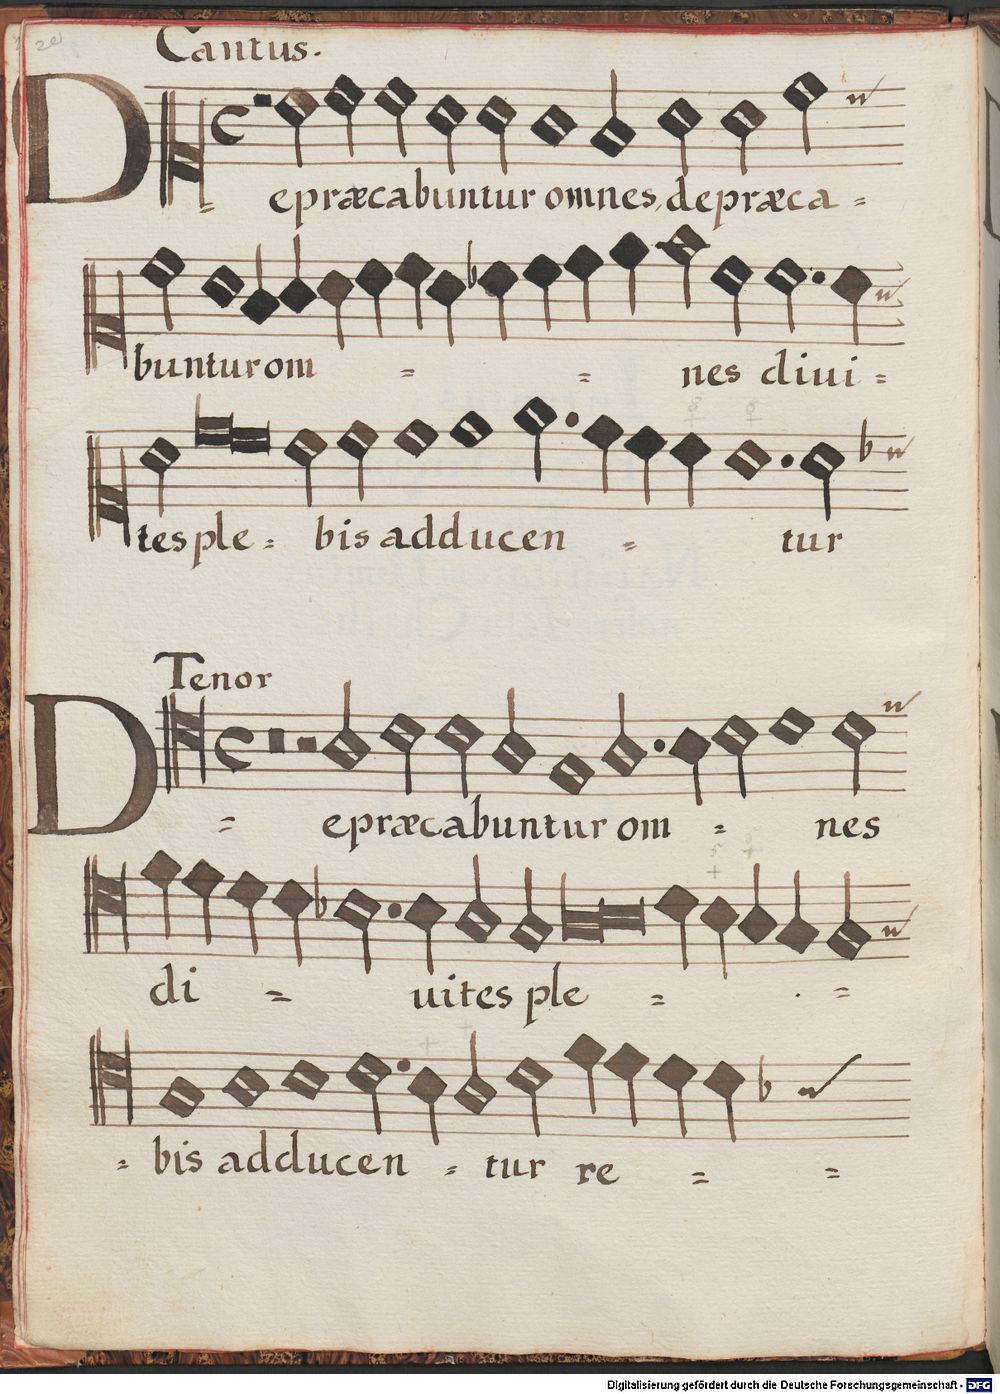 Cantus.
Depræcabuntur omnes, depræca=
bunturom = = nes diui=
tesple= bis adducen = tur
Tenor
D= epræcabuntur om = nes
di = uites ple = =
= bis adducen = tur re = =
Digitalisierung gefördert durch die Deutsche Forschungsgemeinschaft - DFG